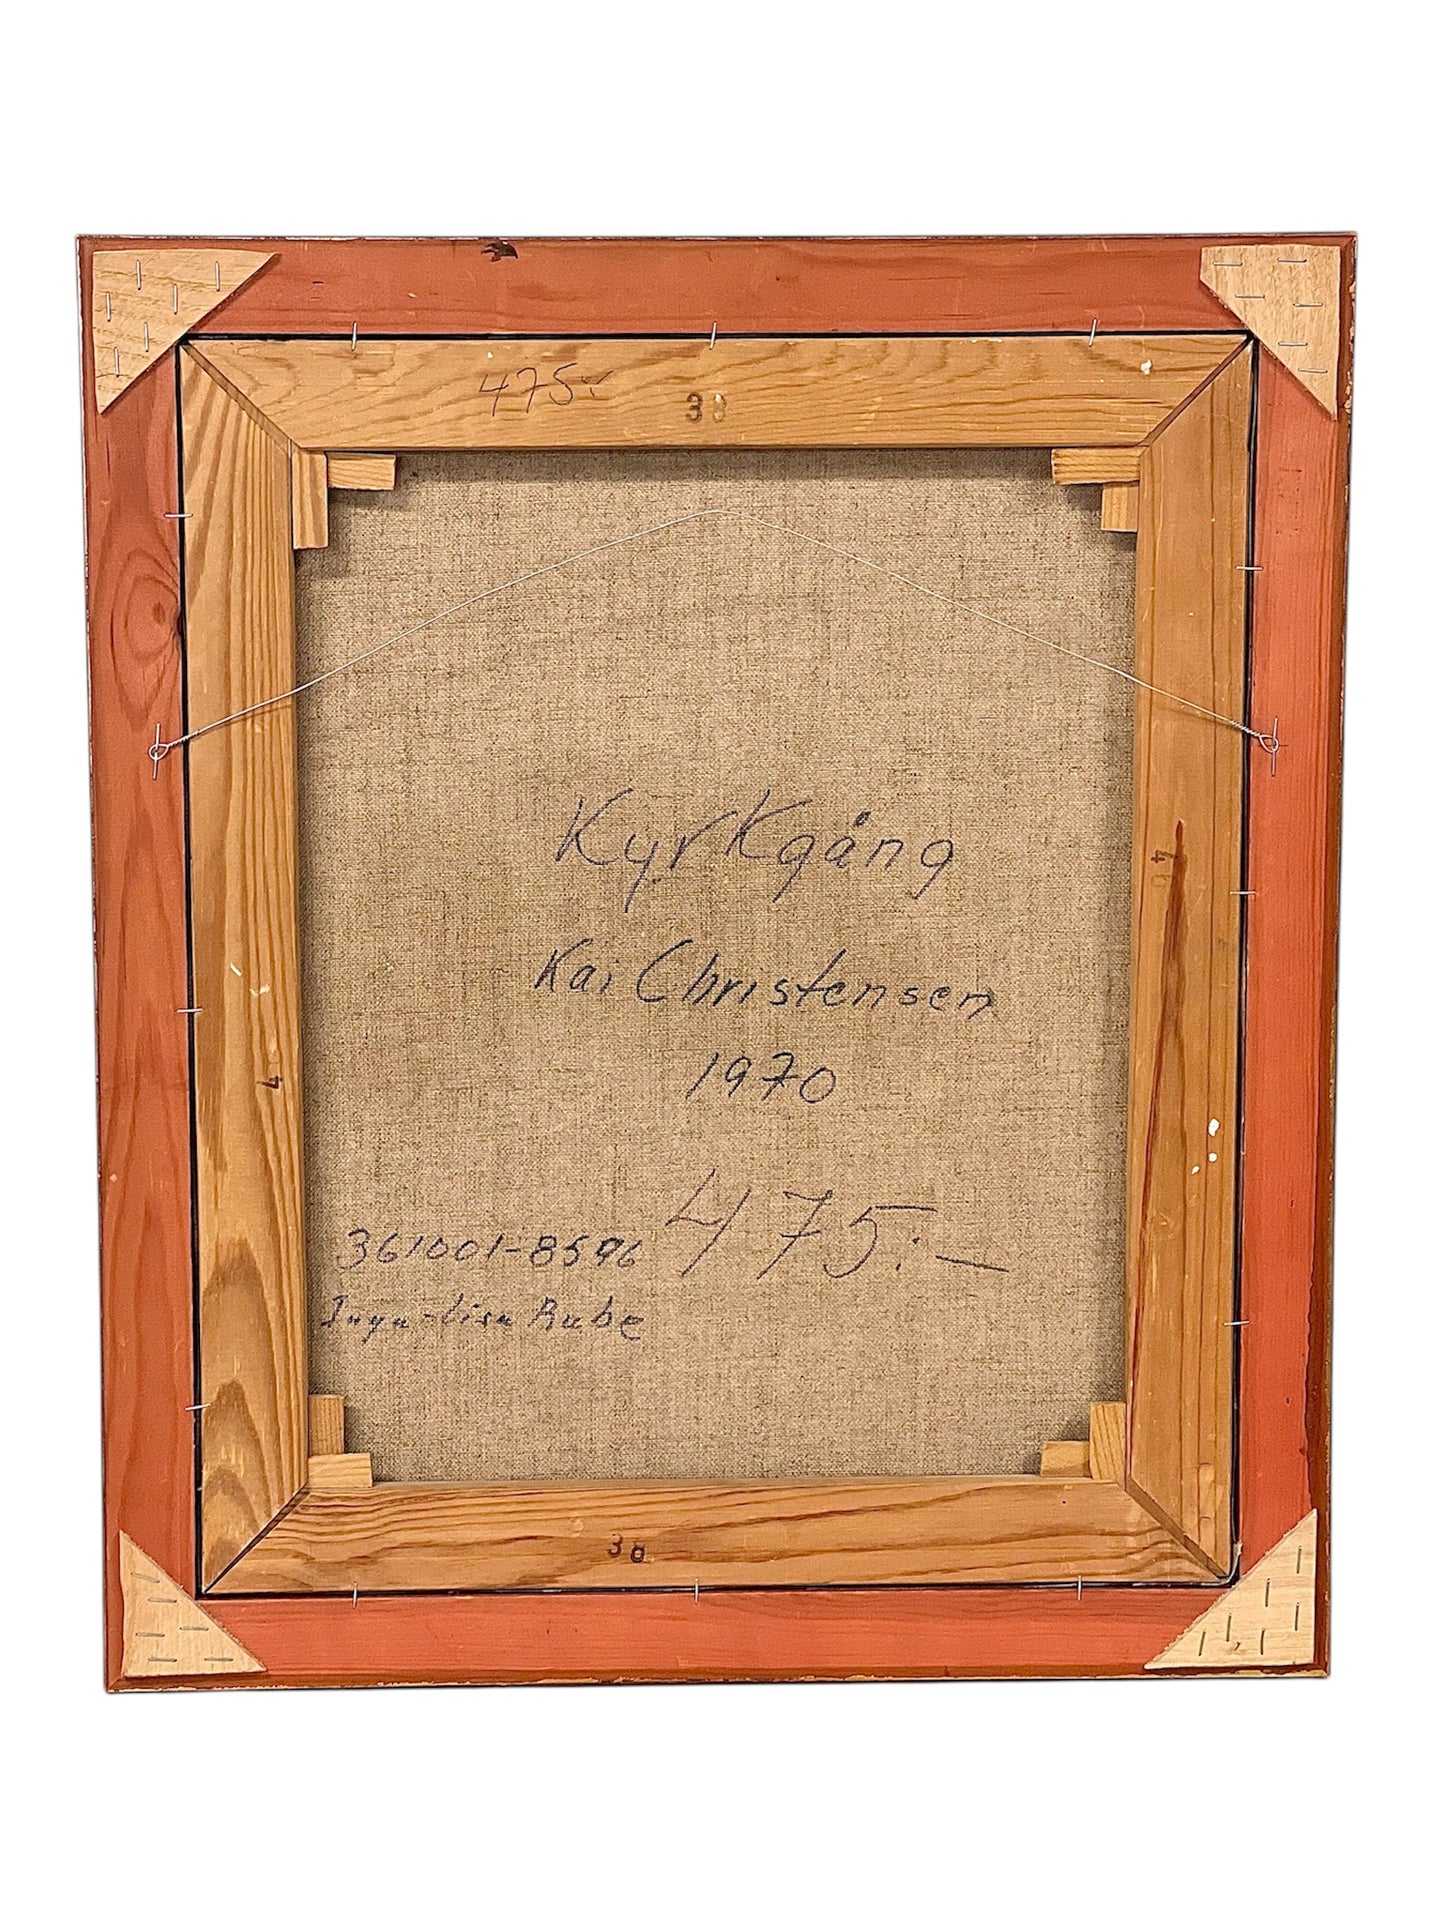 475:-
38
Kyrkgång
Kai Christensen
1970
475:-
361001-8596
Inga-Lisa Rube
4
38